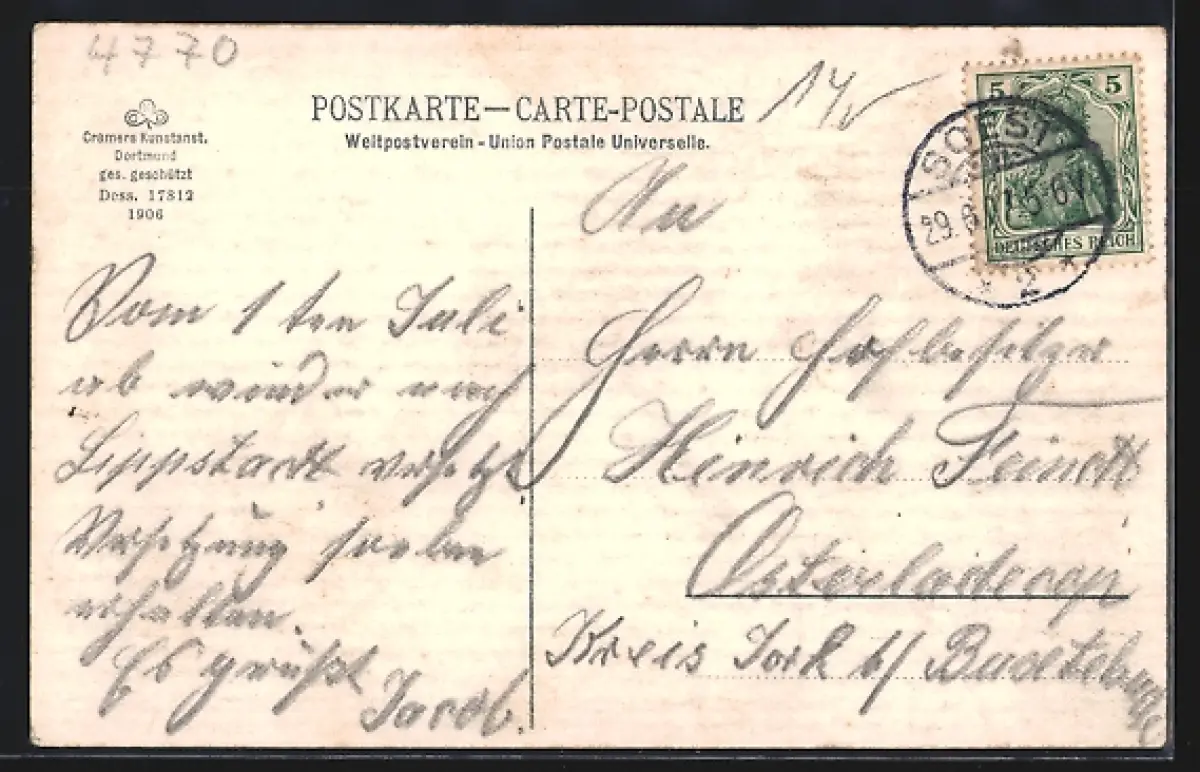 4770
Cramers Kunstanst.
Dortmund
ges. geschützt
Dess. 17812
1906
POSTKARTE—CARTE-POSTALE
Weltpostverein - Union Postale Universelle.
5 5
DEUTSCHES REICH
SOEST
29.6. 5-6V
* 2 *
Vom 1ten Juli
ab wieder nach
Lippstadt versetzt
Versetzung soeben
erhalten.
Es grüßt
Jacob.
An
Herrn Hofbesitzer
Heinrich Feindt
Osterladecop
Kreis Jork b/ Buxtehude